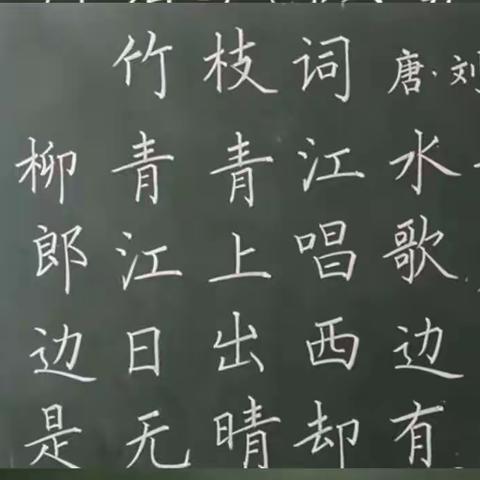 竹枝词 唐·刘
柳青青江水
郎江上唱歌
边日出西边
是无晴却有